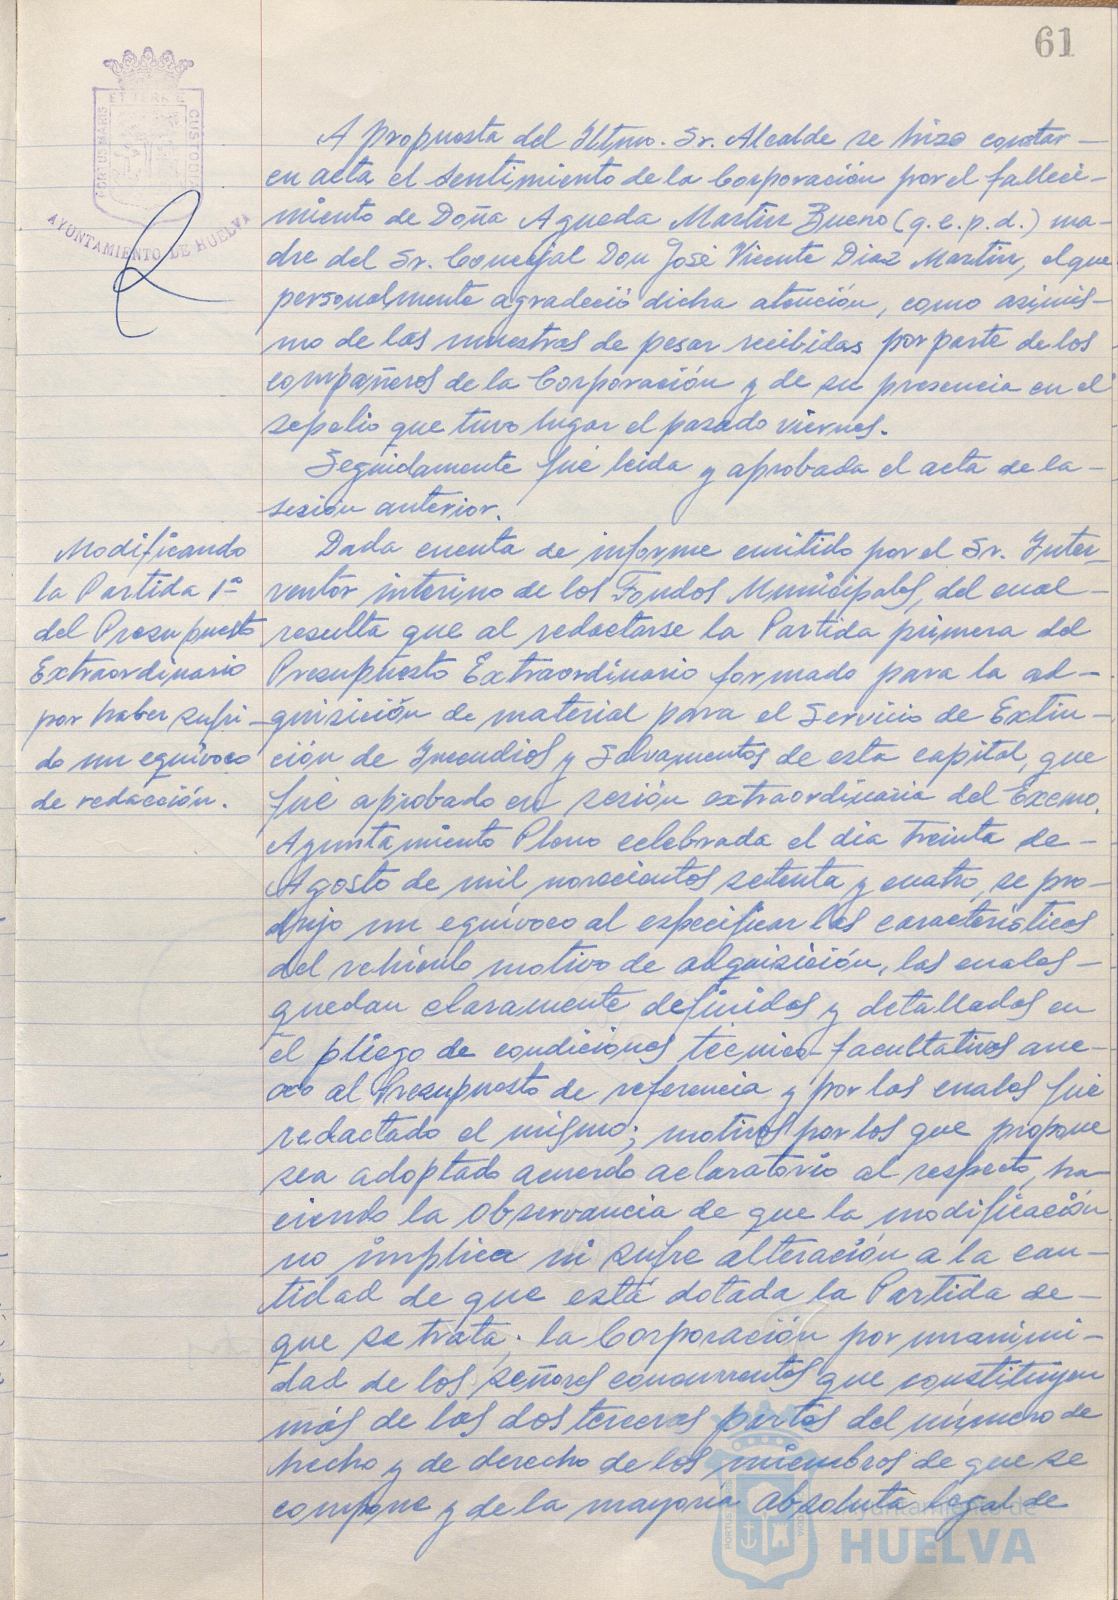 61
PORTUS MARIS ET TERRAE CUSTODIA
AYUNTAMIENTO DE HUELVA
A propuesta del Iltmo. Sr. Alcalde se hizo constar-
en acta el sentimiento de la Corporación por el falleci-
miento de Doña Agueda Martín Bueno (q.e.p.d.) ma-
dre del Sr. Concejal Don José Vicente Diaz Martin, el que
personalmente agradeció dicha atención, como asimis-
mo de las muestras de pesar recibidas por parte de los
compañeros de la Corporación y de su presencia en el
sepelio que tuvo lugar el pasado viernes.
Seguidamente fué leida y aprobada el acta de la-
sesión anterior.
Modificando
la Partida 1ª
del Presupuesto
Extraordinario
por haber sufri-
do un equívoco
de redacción.
Dada cuenta de informe emitido por el Sr. Inter-
ventor interino de los Fondos Municipales, del cual-
resulta que al redactarse la Partida primera del
Presupuesto Extraordinario formado para la ad-
quisición de material para el Servicio de Extin-
ción de Incendios y Salvamentos de esta capital, que
fué aprobado en sesión extraordinaria del Excmo.
Ayuntamiento Pleno celebrada el dia treinta de-
Agosto de mil novecientos setenta y cuatro, se pro-
dujo un equívoco al especificar las características
del vehículo motivo de adquisición, las cuales-
quedan claramente definidas y detalladas en
el pliego de condiciones técnico-facultativas ane-
xo al Presupuesto de referencia y por las cuales fué
redactado el mismo; motivos por los que propone
sea adoptado acuerdo aclaratorio al respecto, ha
ciendo la observancia de que la modificación
no implica ni sufre alteración a la can-
tidad de que está dotada la Partida de-
que se trata; la Corporación por unanimi-
dad de los señores concurrentes que constituyen
más de las dos terceras partes del número de
hecho y de derecho de los miembros de que se
compone y de la mayoría absoluta legal de
Ayuntamiento de
HUELVA